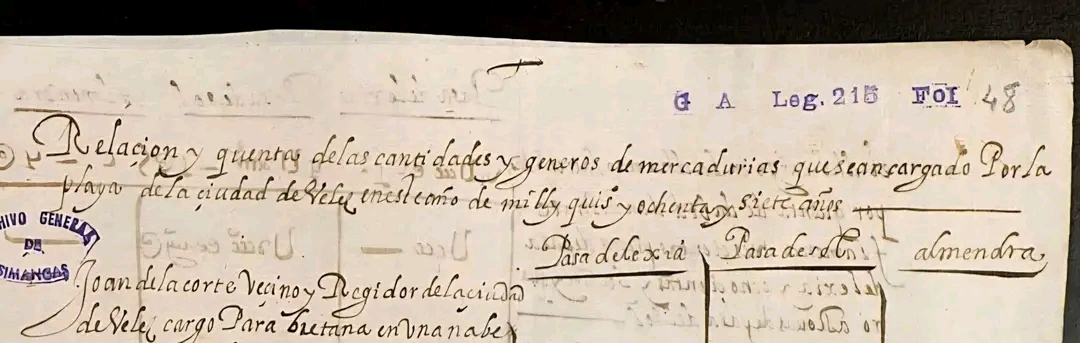 G A Leg. 215 FOl 48
Relaçion y quenta de las cantidades y generos de mercadurias que sean cargado Por la
playa de la çiudad de Velez en este año de mill y quis y ochenta y siete años
HIVO GENERAL
DE
SIMANCAS
Pasa de lexia Pasa de sol almendra
Joan de la corte Veçino y Regidor de la çiudad
de Velez cargo Para bretana en vna nabe